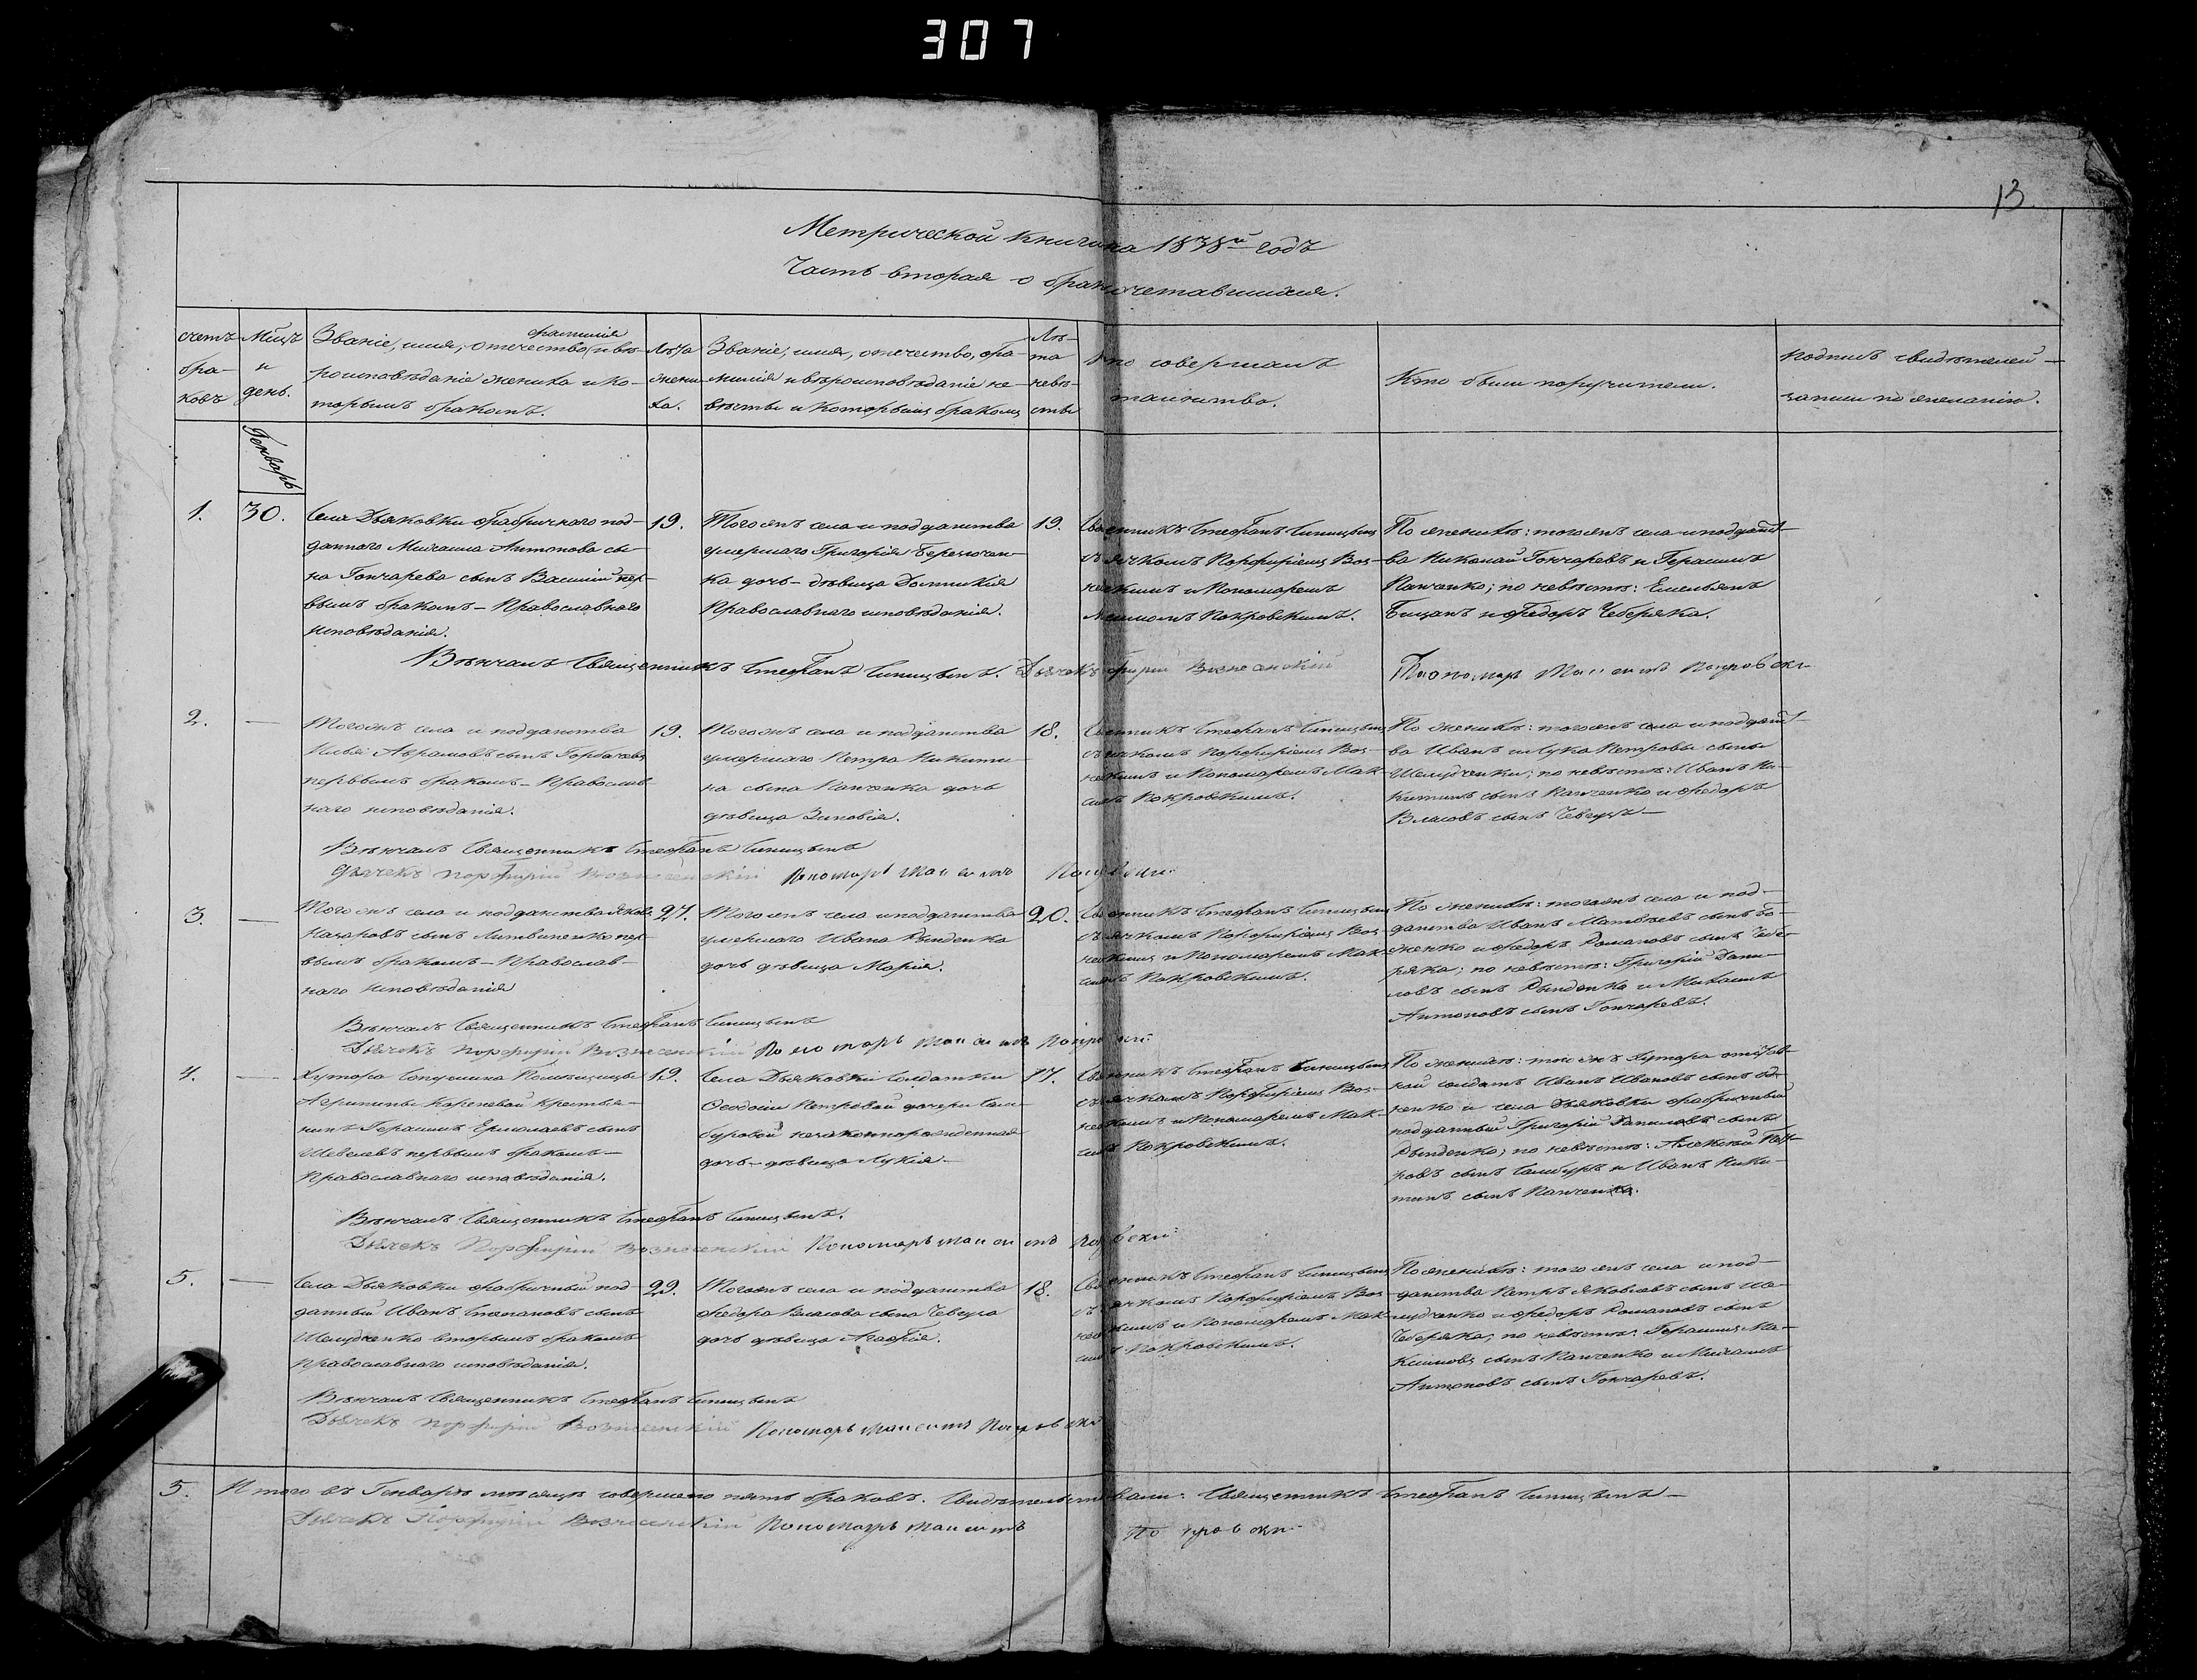 307
13.
Метрической книги на 1838й годъ
Часть вторая о бракосочетавшихся.
счетъ браковъ
Мцъ и день.
Званіе, имя, отечество, фамилія и вѣроисповѣданіе жениха и которымъ бракомъ.
Лѣта жениха.
Званіе, имя, отечество, фамилія и вѣроисповѣданіе невѣсты и которымъ бракомъ
Лѣта невѣсты
Кто совершалъ таинство.
Кто были поручители.
подпись свидѣтелей записи по желанію.
Генварь
1.
30.
Села Дьяковки фабричнаго под-
даннаго Михаила Антонова сы-
на Гончарева сынъ Василій пер-
вымъ бракомъ – Православнаго
исповѣданія.
19.
Тогожъ села и подданства
умершаго Григорія
ка дочь – дѣвица Домникія
Православнаго исповѣданія.
19.
Священникъ Стефанъ Синицынъ
съ дьячкомъ Порфиріемъ Воз-
несенскимъ и Пономаремъ
Максимомъ Покровскимъ.
По женихѣ: тогожъ села и поддан-
ва Николай Гончаревъ и Герасимъ
Панченко; по невѣстѣ: Емельянъ
и Федоръ Чеберяка.
Вѣнчалъ Священникъ Стефанъ Синицынъ. Дьячекъ Порфирій Вознесенскій Пономарь Максимъ Покровскій
2.
—
Тогожъ села и подданства
Илья Аврамовъ сынъ Горбачевъ
первымъ бракомъ – Православ-
наго исповѣданія.
19.
Тогожъ села и подданства
умершаго Петра Никити-
на сына Панченка дочь
дѣвица Зиновія.
18.
Священникъ Стефанъ Синицынъ
съ дьячкомъ Порфиріемъ Воз-
несенскимъ и Пономаремъ Мак-
симъ Покровскимъ.
По женихѣ: тогожъ села и поддан-
ва Иванъ и Лука Петровы сыны
Шелудченки; по невѣстѣ: Иванъ Ни-
китинъ сынъ Панченко и Федоръ
Власовъ сынъ Чевуга —
Вѣнчалъ Священникъ Стефанъ Синицынъ
Дьячекъ Порфирій Вознесенскій Пономарь Максимъ Покровскій
3.
—
Тогожъ села и подданства Яковъ
Назаровъ сынъ Литвиненко пер-
вымъ бракомъ – Православ-
наго исповѣданія
27.
Тогожъ села и подданства
умершаго Ивана Рынденка
дочь дѣвица Марія.
20.
Священникъ Стефанъ Синицынъ
съ дьячкомъ Порфиріемъ Воз-
несенскимъ и Пономаремъ Мак-
симъ Покровскимъ.
По женихѣ: тогожъ села и под-
данства Иванъ Матвѣевъ сынъ Бо-
женко и Федоръ Романовъ сынъ Чебе-
ряка; по невѣстѣ: Григорій Дани-
ловъ сынъ Рынденко и Михаилъ
Антоновъ сынъ Гончаревъ.
Вѣнчалъ Священникъ Стефанъ Синицынъ
Дьячекъ Порфирій Вознесенскій Пономарь Максимъ Покровскій
4.
—
Хутора Помѣщицы
Агрипины Кореневой крестья-
нинъ Герасимъ Ермолаевъ сынъ
Шевелевъ первымъ бракомъ —
Православнаго исповѣданія.
19.
Села Дьяковки Солдатки
Феодосіи Петровой дочери Сам-
буровой незаконнорожденная
дочь – дѣвица Лукія —
17.
Священникъ Стефанъ Синицынъ
съ дьячкомъ Порфиріемъ Воз-
несенскимъ и Пономаремъ Мак-
симъ Покровскимъ.
По женихѣ: того жъ хутора отстав-
ной солдатъ Иванъ Ивановъ сынъ
и села Дьяковки фабричный
подданный Григорій Даниловъ сынъ
Рынденко; по невѣстѣ: Алексѣй Пет-
ровъ сынъ Самбуръ и Иванъ Ники-
тинъ сынъ Панченко.
Вѣнчалъ Священникъ Стефанъ Синицынъ.
Дьячекъ Порфирій Вознесенскій Пономарь Максимъ Покровскій
5.
—
Села Дьяковки фабричный под-
данный Иванъ Степановъ сынъ
Шелудченко вторымъ бракомъ
Православнаго исповѣданія.
29.
Тогожъ села и подданства
Федора Власова сына Чевуга
дочь дѣвица Агафія.
18.
Священникъ Стефанъ Синицынъ
съ дьячкомъ Порфиріемъ Воз-
несенскимъ и Пономаремъ Мак-
симъ Покровскимъ.
По женихѣ: того жъ села и под-
данства Петръ Яковлевъ сынъ Ше-
лудченко и Федоръ Романовъ сынъ
Чеберяка; по невѣстѣ: Герасимъ Ма-
ксимовъ сынъ Панченко и Михаилъ
Антоновъ сынъ Гончаревъ.
Вѣнчалъ Священникъ Стефанъ Синицынъ
Дьячекъ Порфирій Вознесенскій Пономарь Максимъ Покровскій
5. Итого въ Генварѣ мѣсяцѣ совершено пять браковъ. Свидѣтельствовали: Священникъ Стефанъ Синицынъ —
Дьячекъ Порфирій Вознесенскій Пономарь Максимъ Покровскій